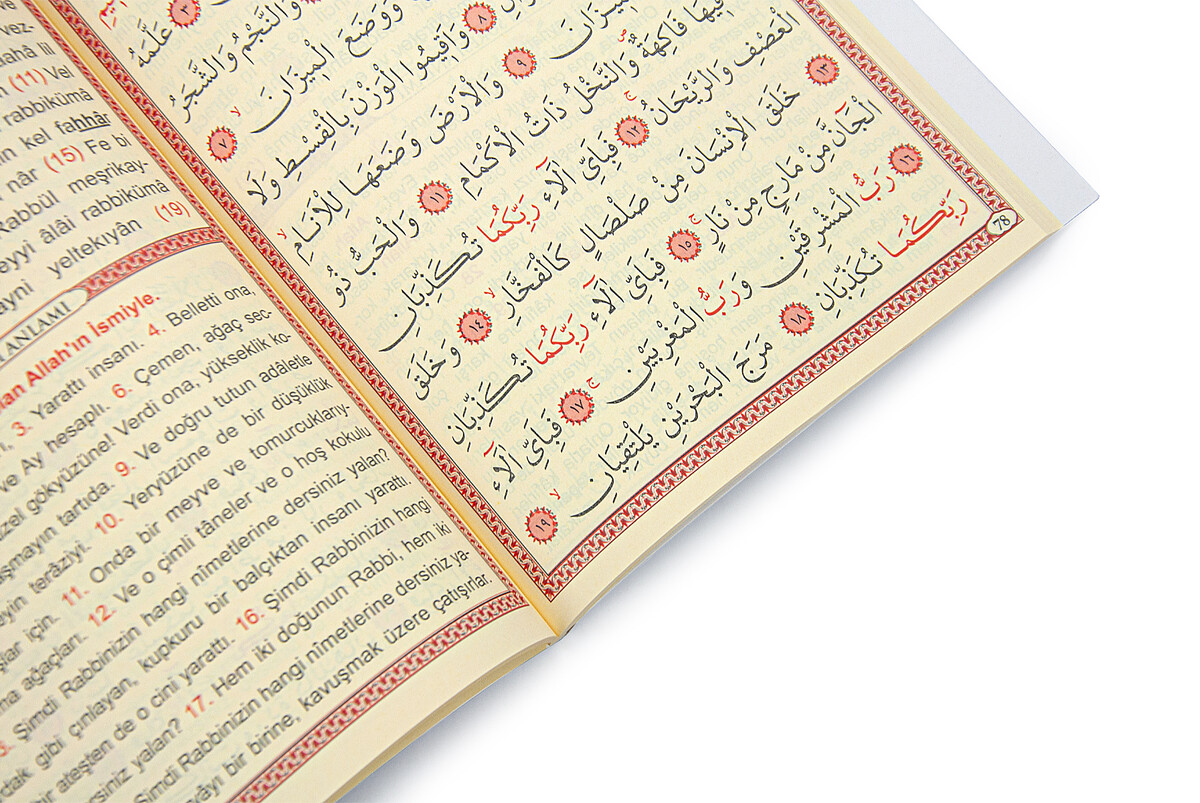 (11) Vel
rabbikümâ
kel fahhâr
nâr (15) Fe bi
Rabbül meşrikay-
âlâi rabbikümâ
yeltekıyân (19)
ANLAMI
Allah'ın İsmiyle.
3. Yarattı insanı. 4. Belletti ona,
ve Ay hesaplı. 6. Çemen, ağaç sec-
gökyüzüne! Verdi ona, yükseklik ko-
tartıda. 9. Ve doğru tutun adâletle
terâziyi. 10. Yeryüzüne de bir düşüklük
için. 11. Onda bir meyve ve tomurcuklarıy-
ağaçları. 12. Ve o çimli tâneler ve o hoş kokulu
Şimdi Rabbinizin hangi nîmetlerine dersiniz yalan?
gibi çınlayan, kupkuru bir balçıktan insanı yarattı.
bir ateşten de o cini yarattı. 16. Şimdi Rabbinizin hangi
yalan? 17. Hem iki doğunun Rabbi, hem iki
Şimdi Rabbinizin hangi nîmetlerine dersiniz ya-
bir birine, kavuşmak üzere çatışırlar.
عَلَّمَهُ
وَالنَّجْمُ وَالشَّجَرُ
وَوَضَعَ الْمِيزَانَ ﴿٧﴾
﴿٨﴾ وَاَقِيمُوا الْوَزْنَ بِالْقِسْطِ وَلَا
الْمِيزَانَ ﴿٩﴾ وَالْاَرْضَ وَضَعَهَا لِلْاَنَامِ
فِيهَا فَاكِهَةٌ وَالنَّخْلُ ذَاتُ الْاَكْمَامِ ﴿١١﴾ وَالْحَبُّ ذُو
الْعَصْفِ وَالرَّيْحَانُ ﴿١٢﴾ فَبِاَيِّ اٰلَٓاءِ رَبِّكُمَا تُكَذِّبَانِ
﴿١٣﴾ خَلَقَ الْاِنْسَانَ مِنْ صَلْصَالٍ كَالْفَخَّارِ ﴿١٤﴾ وَخَلَقَ
الْجَٓانَّ مِنْ مَارِجٍ مِنْ نَارٍ ﴿١٥﴾ فَبِاَيِّ اٰلَٓاءِ رَبِّكُمَا تُكَذِّبَانِ
﴿١٦﴾ رَبُّ الْمَشْرِقَيْنِ وَرَبُّ الْمَغْرِبَيْنِ ﴿١٧﴾ فَبِاَيِّ اٰلَٓاءِ
رَبِّكُمَا تُكَذِّبَانِ ﴿١٨﴾ مَرَجَ الْبَحْرَيْنِ يَلْتَقِيَانِ ﴿١٩﴾
78